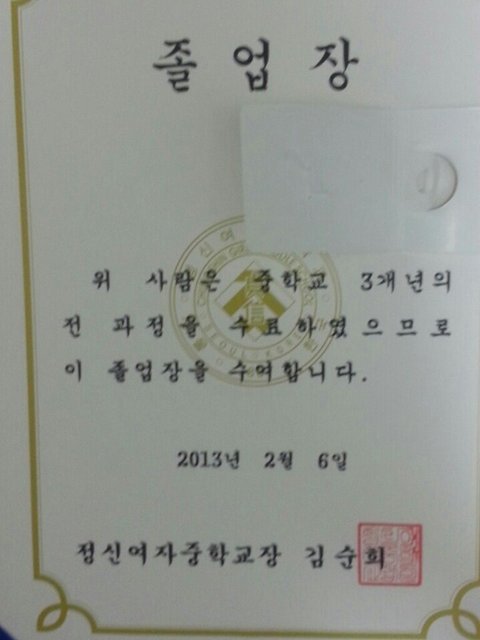 졸업장
위 사람은 중학교 3개년의
전 과정을 수료하였으므로
이 졸업장을 수여합니다.
2013년 2월 6일
정신여자중학교장 김순희